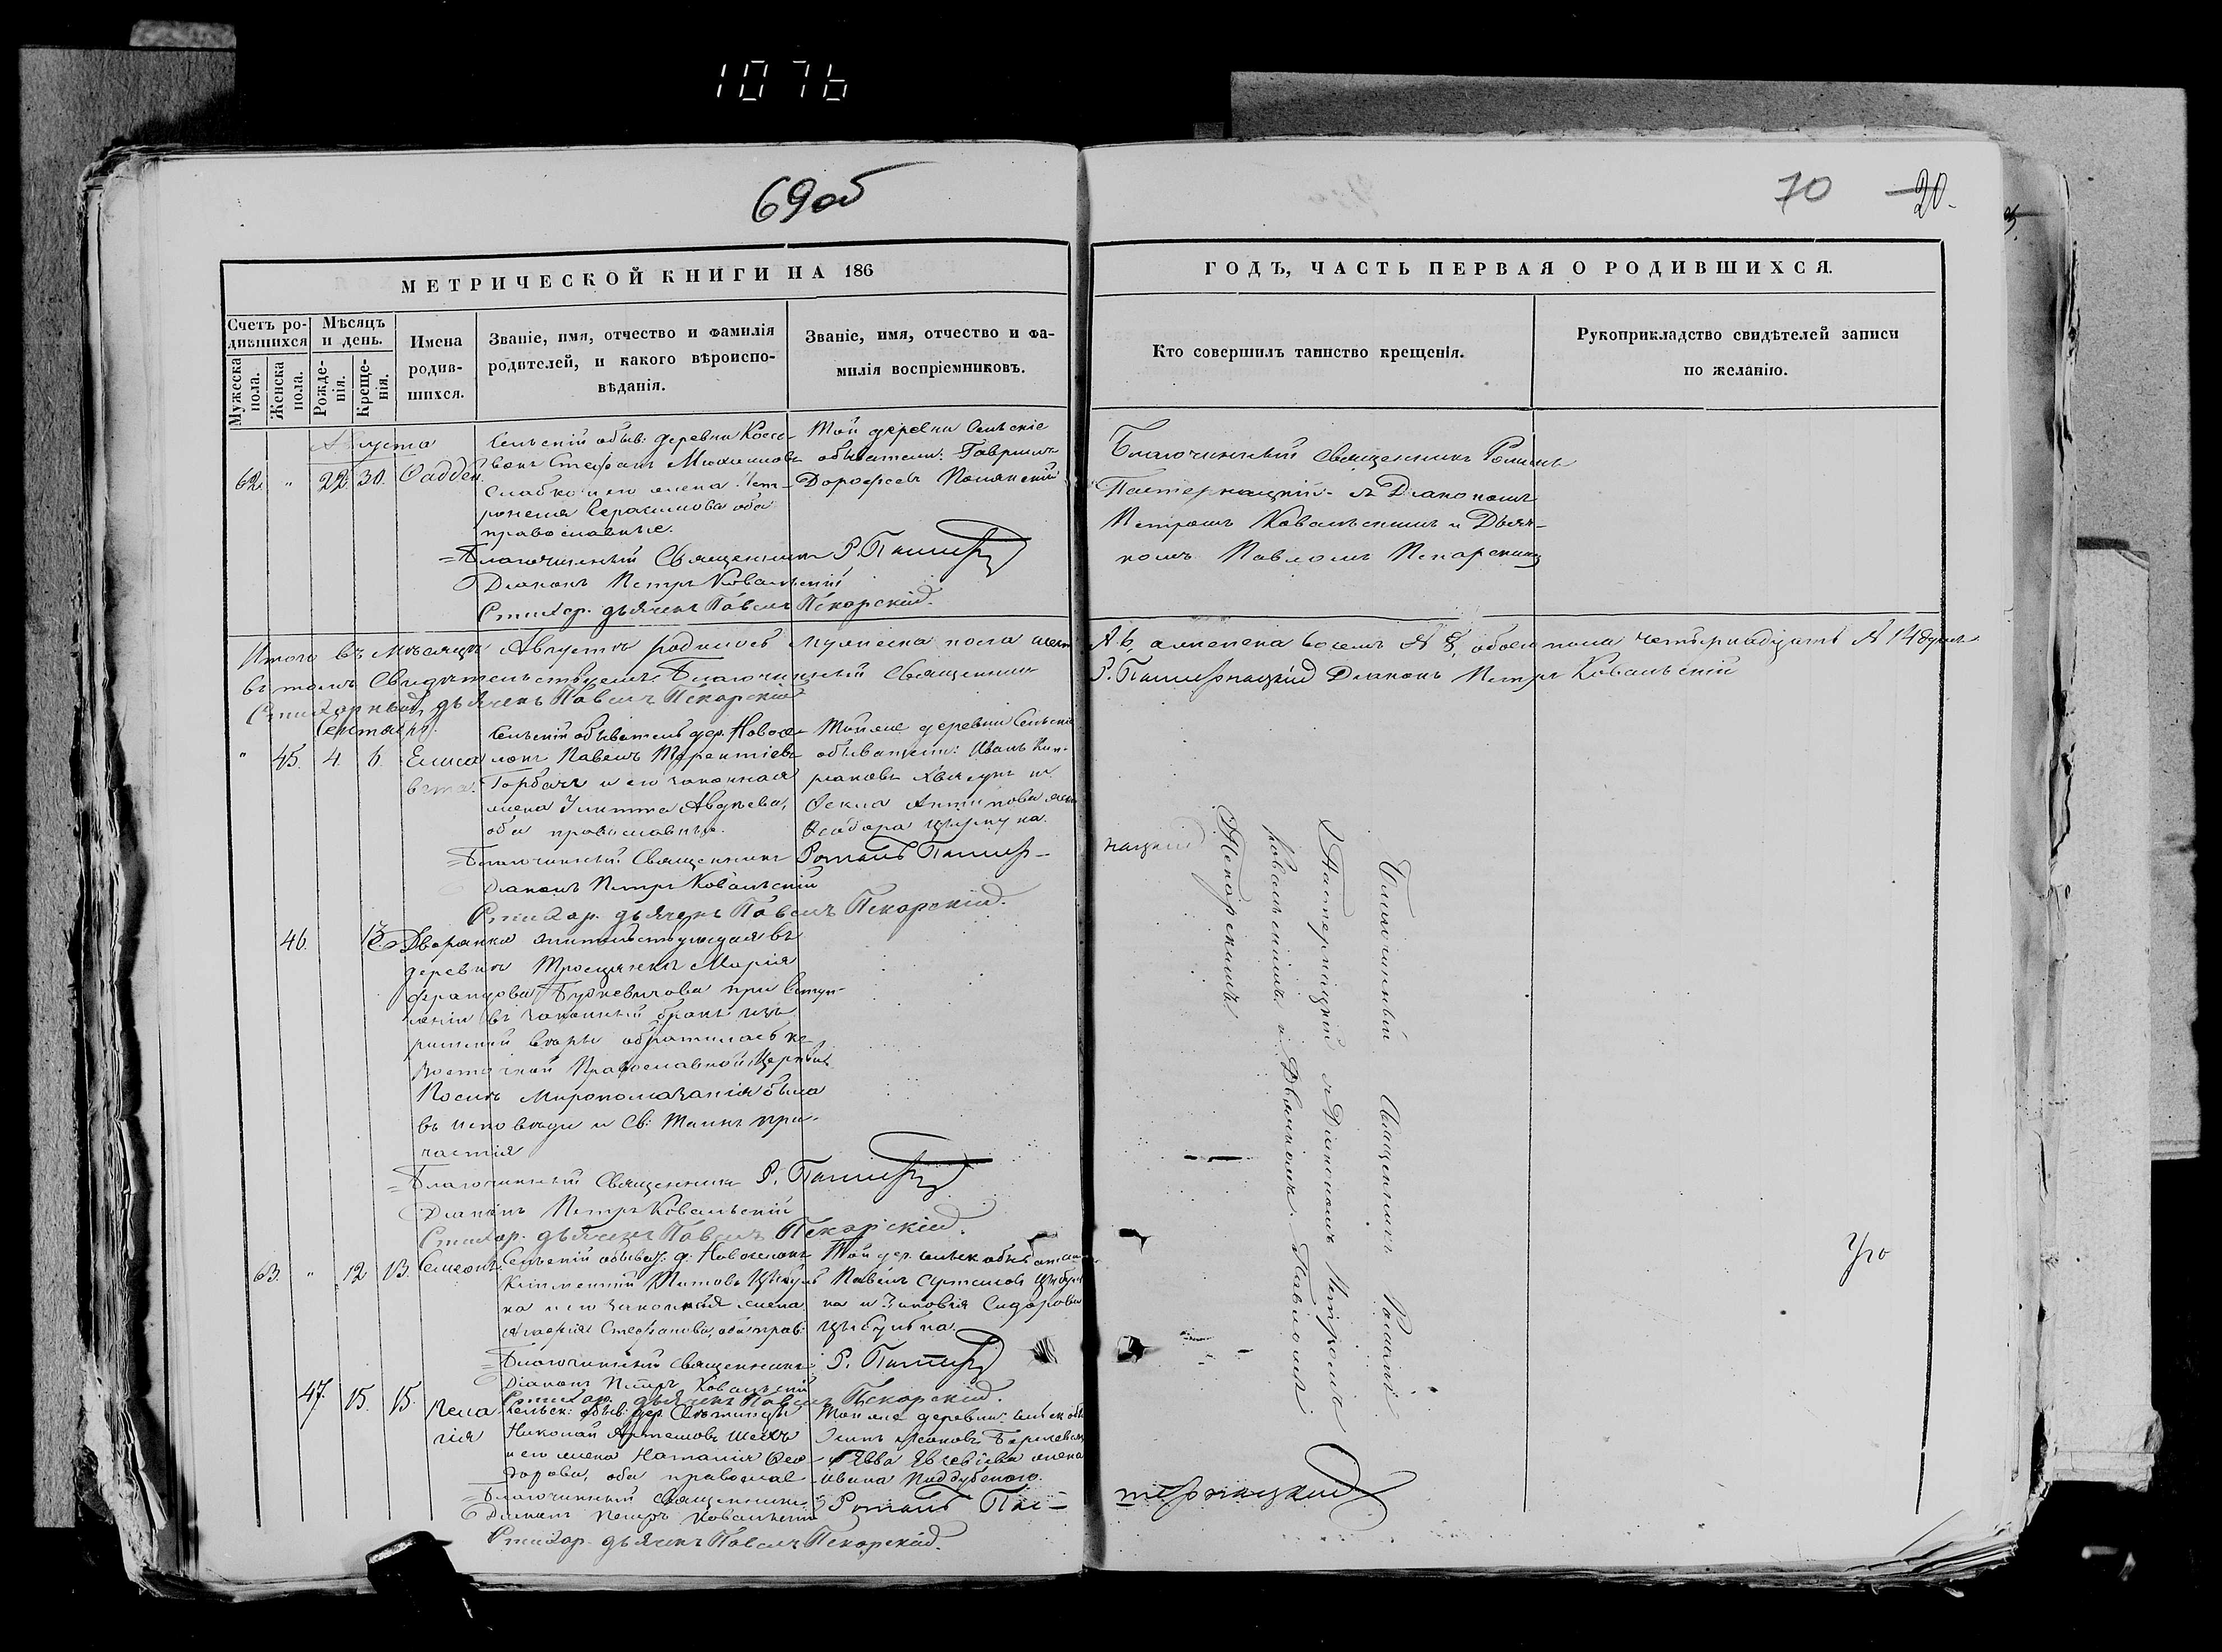 1076
69об
70 20.
МЕТРИЧЕСКОЙ КНИГИ НА 186
Счетъ родившихся
Мѣсяцъ и день.
Мужеска пола.
Женска пола.
Рожденія.
Крещенія.
Имена родившихся.
Званіе, имя, отчество и фамилія
родителей, и какого вѣроиспо-
вѣданія.
Званіе, имя, отчество и фа-
милія воспріемниковъ.
Августа
62. " 22. 30. Фаддей
Сельскій обыв: деревни
Стефанъ
и его жена
оба
православные.
Той деревни Сельскіе
обыватели: Гавриилъ
Дорофеевъ
=Благочинный Священникъ Р. Пастер
Діаконъ Петръ Ковальскій
Стихар. дьячекъ Павелъ Пекарскій.
Итого въ мѣсяцѣ Августѣ родилось мужеска пола шесть
въ томъ свидѣтельствуемъ: Благочинный Священникъ
Стихарный дьячекъ Павелъ Пекарскій
Сентябрь.
" 45. 4. 6. Елиса
вета.
Сельскій обыватель дер. Новосе-
локъ Павелъ Терентіевъ
Горбачъ и его законная
жена Улитта Авдѣева,
оба православные.
Той же деревни Сельскіе
обыватели: Иванъ
и
Фекла Антипова жена
Феодора
=Благочинный Священникъ Романъ Пастер-
Діаконъ Петръ Ковальскій
Стихар. дьячекъ Павелъ Пекарскій.
46. 13. Дворянка жительствующая въ
деревнѣ Тросцянкѣ Марія
Францова при вступ-
леніи въ законный бракъ изъ
римской вѣры обратилась къ
Восточной Православной Церкви.
Послѣ Миропомазанія была
въ исповѣди и Св: Таинъ при-
частія
=Благочинный Священникъ Р. Пастер
Діаконъ Петръ Ковальскій
Стихар. дьячекъ Павелъ Пекарскій.
63. " 12 13. Симеонъ
Сельскій обыват. д. Новоселокъ
Климентій Титовъ Цыбуль
ка и его законная жена
Агафія Стефанова, оба прав:
Той дер. сельск обыватели
Павелъ Цыбуль
ка и Зиновія Сидорова
Цыбулька.
=Благочинный священникъ Р. Пастер
Діаконъ Петръ Ковальскій
Стихар. дьячекъ Павелъ Пекарскій.
47. 15. 15. Пела
гія
Сельск: обыв: дер.
Николай Артемовъ
и его жена Наталія Фео-
дорова, оба православ
Той же деревни сельск обы
Осипъ
Евва жена
Ивана Поддубного.
=Благочинный священникъ Романъ Пас-
Діаконъ Петръ Ковальскій
Стихар. дьячекъ Павелъ Пекарскій.
ГОДЪ, ЧАСТЬ ПЕРВАЯ О РОДИВШИХСЯ.
Кто совершилъ таинство крещенія.
Рукоприкладство свидѣтелей записи
по желанію.
Благочинный Священникъ Романъ
Пастернацкій съ Діакономъ
Петромъ Ковальскимъ и Дьяч-
комъ Павломъ Пекарскимъ
№ 6, а женска восемь № 8, обоего пола четырнадцать № 14 душъ
Р. Пастернацкій Діаконъ Петръ Ковальскій
нацкій
Благочинный Священникъ Романъ
Пастернацкій съ Діакономъ Петромъ
Ковальскимъ и Дьячкомъ Павломъ
Пекарскимъ
тернацкій